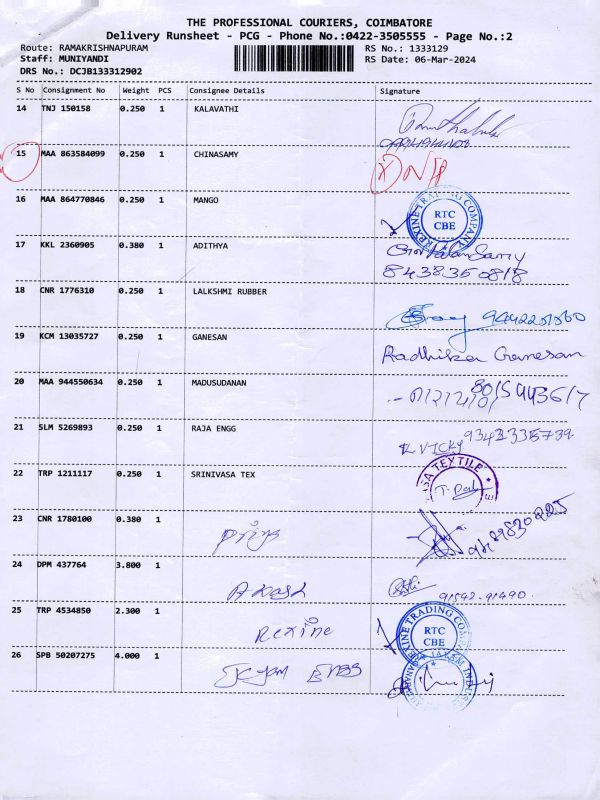 THE PROFESSIONAL COURIERS, COIMBATORE
Delivery Runsheet - PCG - Phone No.:0422-3505555 - Page No.:2
Route: RAMAKRISHNAPURAM RS No.: 1333129
Staff: MUNIYANDI RS Date: 06-Mar-2024
DRS No.: DCJB133312902
S No Consignment No Weight PCS Consignee Details Signature
14 TNJ 150158 0.250 1 KALAVATHI
15 MAA 863584099 0.250 1 CHINASAMY
16 MAA 864770846 0.250 1 MANGO REXINE TRADING COMPANY RTC CBE
17 KKL 2360905 0.380 1 ADITHYA
8438350818
18 CNR 1776310 0.250 1 LALKSHMI RUBBER
19 KCM 13035727 0.250 1 GANESAN Radhika Ganesan
20 MAA 944550634 0.250 1 MADUSUDANAN
21 SLM 5269893 0.250 1 RAJA ENGG R.VICKY 9342335739
22 TRP 1211117 0.250 1 SRINIVASA TEX
23 CNR 1780100 0.380 1 priya
24 DPM 437764 3.800 1 Akash 91592-91490
25 TRP 4534850 2.300 1 Rexine REXINE TRADING COMPANY RTC CBE
26 SPB 50207275 4.000 1